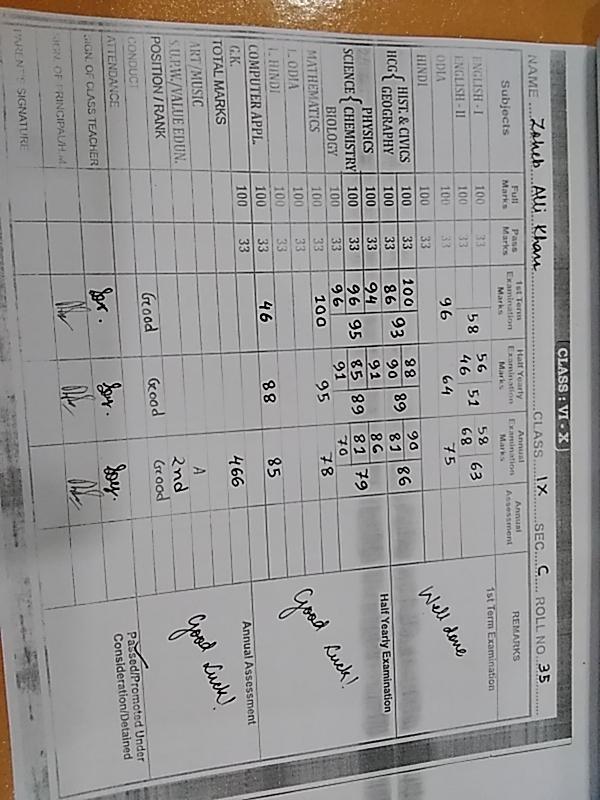 CLASS : VI - X
NAME Zaheb Alli Khan CLASS IX SEC. C ROLL NO. 35
Subjects Full Marks Pass Marks 1st Term Examination Marks Half Yearly Examination Marks Annual Examination Marks Annual Assessment REMARKS
1st Term Examination
ENGLISH - I 100 33 58 56 51 58 63
ENGLISH - II 100 33 46 68
ODIA 100 33 96 64 75
HINDI 100 33
HCG { HIST. & CIVICS 100 33 100 93 88 89 90 86
GEOGRAPHY 100 33 86 90 81
Well done
Half Yearly Examination
PHYSICS 100 33 94 91 86
SCIENCE { CHEMISTRY 100 33 96 95 85 89 81 79
BIOLOGY 100 33 96 91 70
MATHEMATICS 100 33 100 95 78
L. ODIA 100
L. HINDI 100 33
COMPUTER APPL. 100 33 46 88 85
G.K. 100 33
Good Luck!
Annual Assessment
TOTAL MARKS 466
ART/MUSIC
S.U.P.W./VALUE EDUN. A
POSITION / RANK 2nd
CONDUCT Good Good Good
Good Luck!
Passed/Promoted Under
Consideration/Detained
ATTENDANCE
SIGN. OF CLASS TEACHER
SIGN. OF PRINCIPAL/H.M.
PARENT'S SIGNATURE